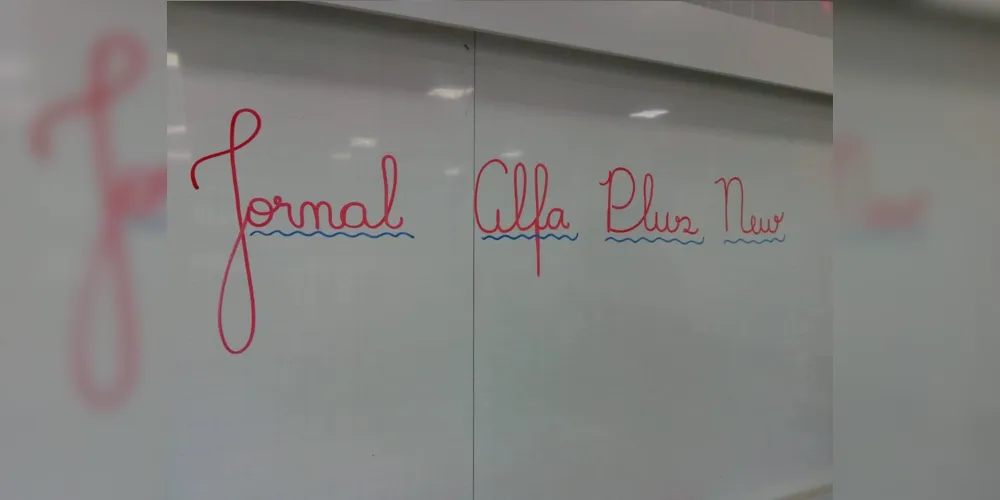 Jornal Alfa Plus New